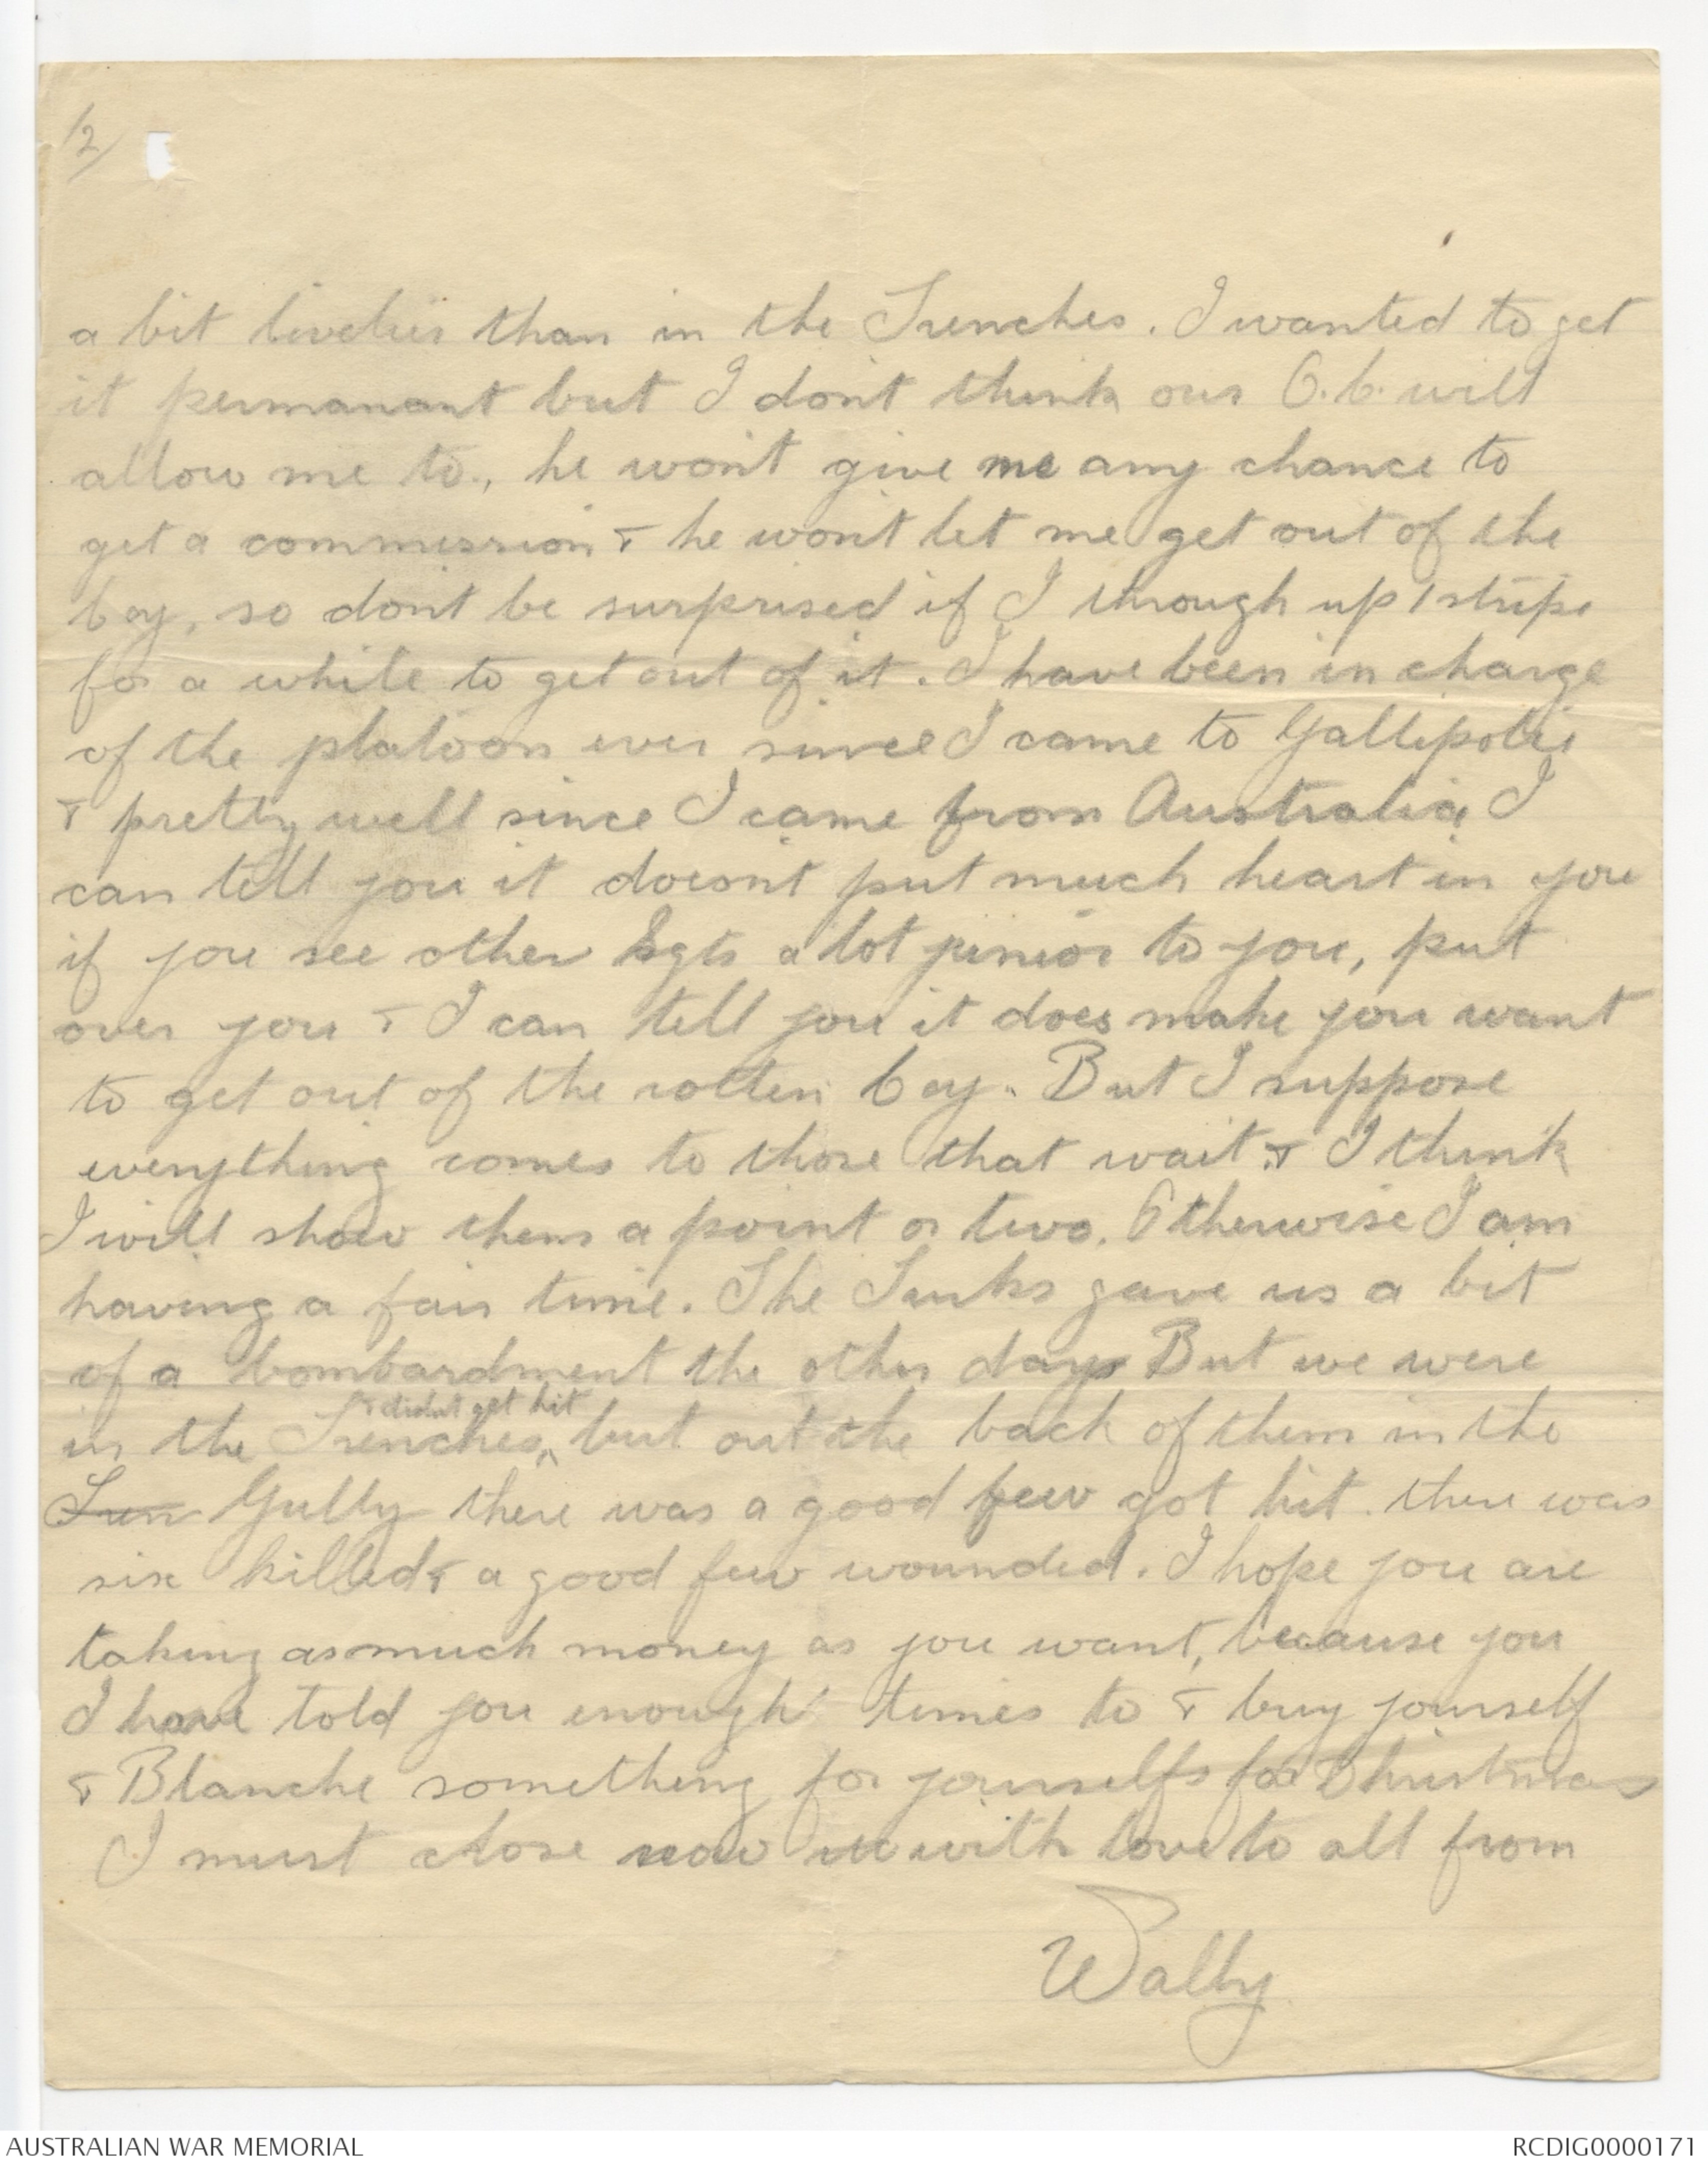 /2/
a bit livelier than in the Trenches. I wanted to get
it permanant but I don't think our O.C. will
allow me to., he won't give me any chance to
get a commission & he won't let me get out of the
Coy, so don't be surprised if I through up 1 stripe
for a while to get out of it. I have been in charge
of the platoon ever since I came to Gallipolie
& pretty well since I came from Australia I
can tell you it doesn't put much heart in you
if you see other Sgts a lot junior to you, put
over you & I can tell you it does make you want
to get out of the rotten Coy. But I suppose
everything comes to those that wait & I think
I will show them a point or two. Otherwise I am
having a fair time. The Turks gave us a bit
of a bombardment the other day But we were
& didnt get hit
in the Trenches, but out the back of them in the
Tren Gully there was a good few got hit. there was
six killed & a good few wounded. I hope you are
taking as much money as you want, because you
I have told you enough times to & buy yourself
& Blanche something for yourselfs for Christmas
I must close now with love to all from
Wally
AUSTRALIAN WAR MEMORIAL
RCDIG0000171